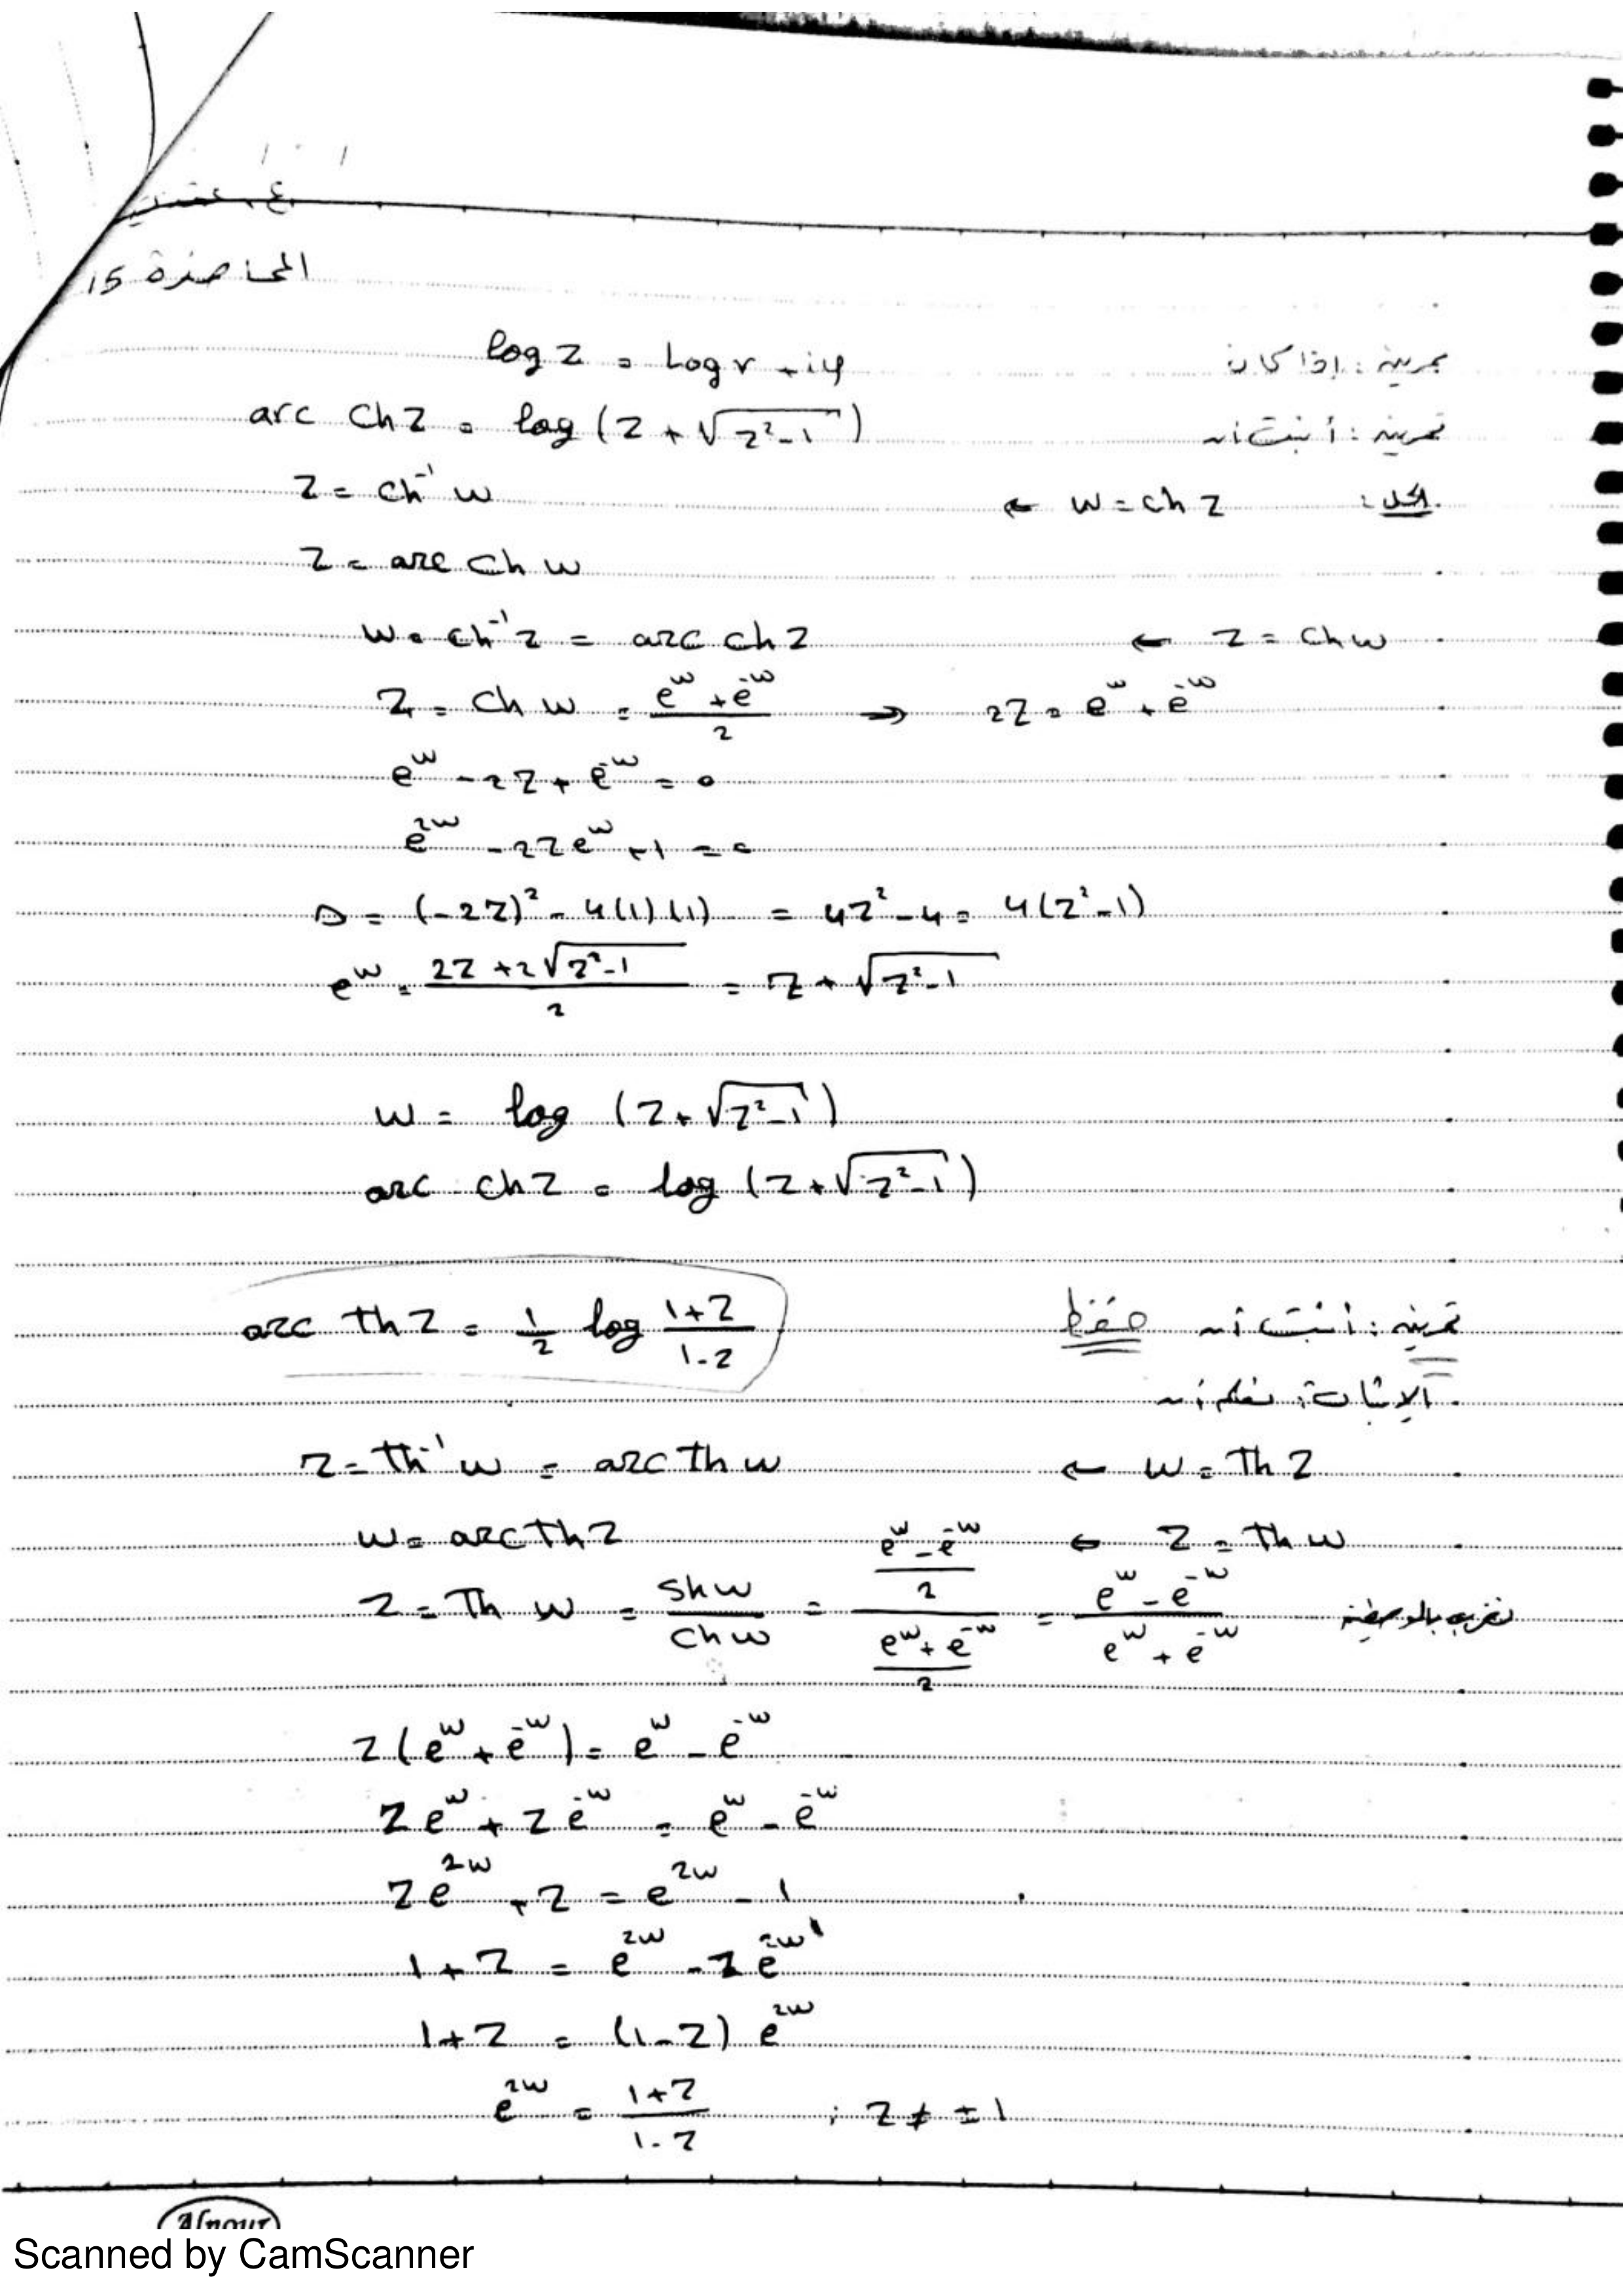 المحاضرة 15
تمرين: إذا كان log z = Log r + iφ
تمرين: أثبت أن arc ch z = log (z + √(z² - 1))
الحل: w = ch z ← z = ch⁻¹ w
z = arc ch w
z = ch w ← w = ch⁻¹ z = arc ch z
z = ch w = (e^w + e^-w)/2 ⇒ 2z = e^w + e^-w
e^w - 2z + e^-w = 0
e^2w - 2z e^w + 1 = 0
Δ = (-2z)² - 4(1)(1) = 4z² - 4 = 4(z² - 1)
e^w = (2z + 2√(z² - 1))/2 = z + √(z² - 1)
w = log (z + √(z² - 1))
arc ch z = log (z + √(z² - 1))
تمرين: أثبت أن حفظ arc th z = 1/2 log (1+z)/(1-z)
الإثبات: نعلم أن
w = Th z ← z = Th⁻¹ w = arc Th w
z = Th w ← w = arc Th z
z = Th w = sh w / ch w = ((e^w - e^-w)/2) / ((e^w + e^-w)/2) = (e^w - e^-w)/(e^w + e^-w) نضرب بالوسطين
z(e^w + e^-w) = e^w - e^-w
z e^w + z e^-w = e^w - e^-w
z e^2w + z = e^2w - 1
1 + z = e^2w - z e^2w
1 + z = (1 - z) e^2w
e^2w = (1+z)/(1-z) ; z ≠ ±1
Alnour
Scanned by CamScanner